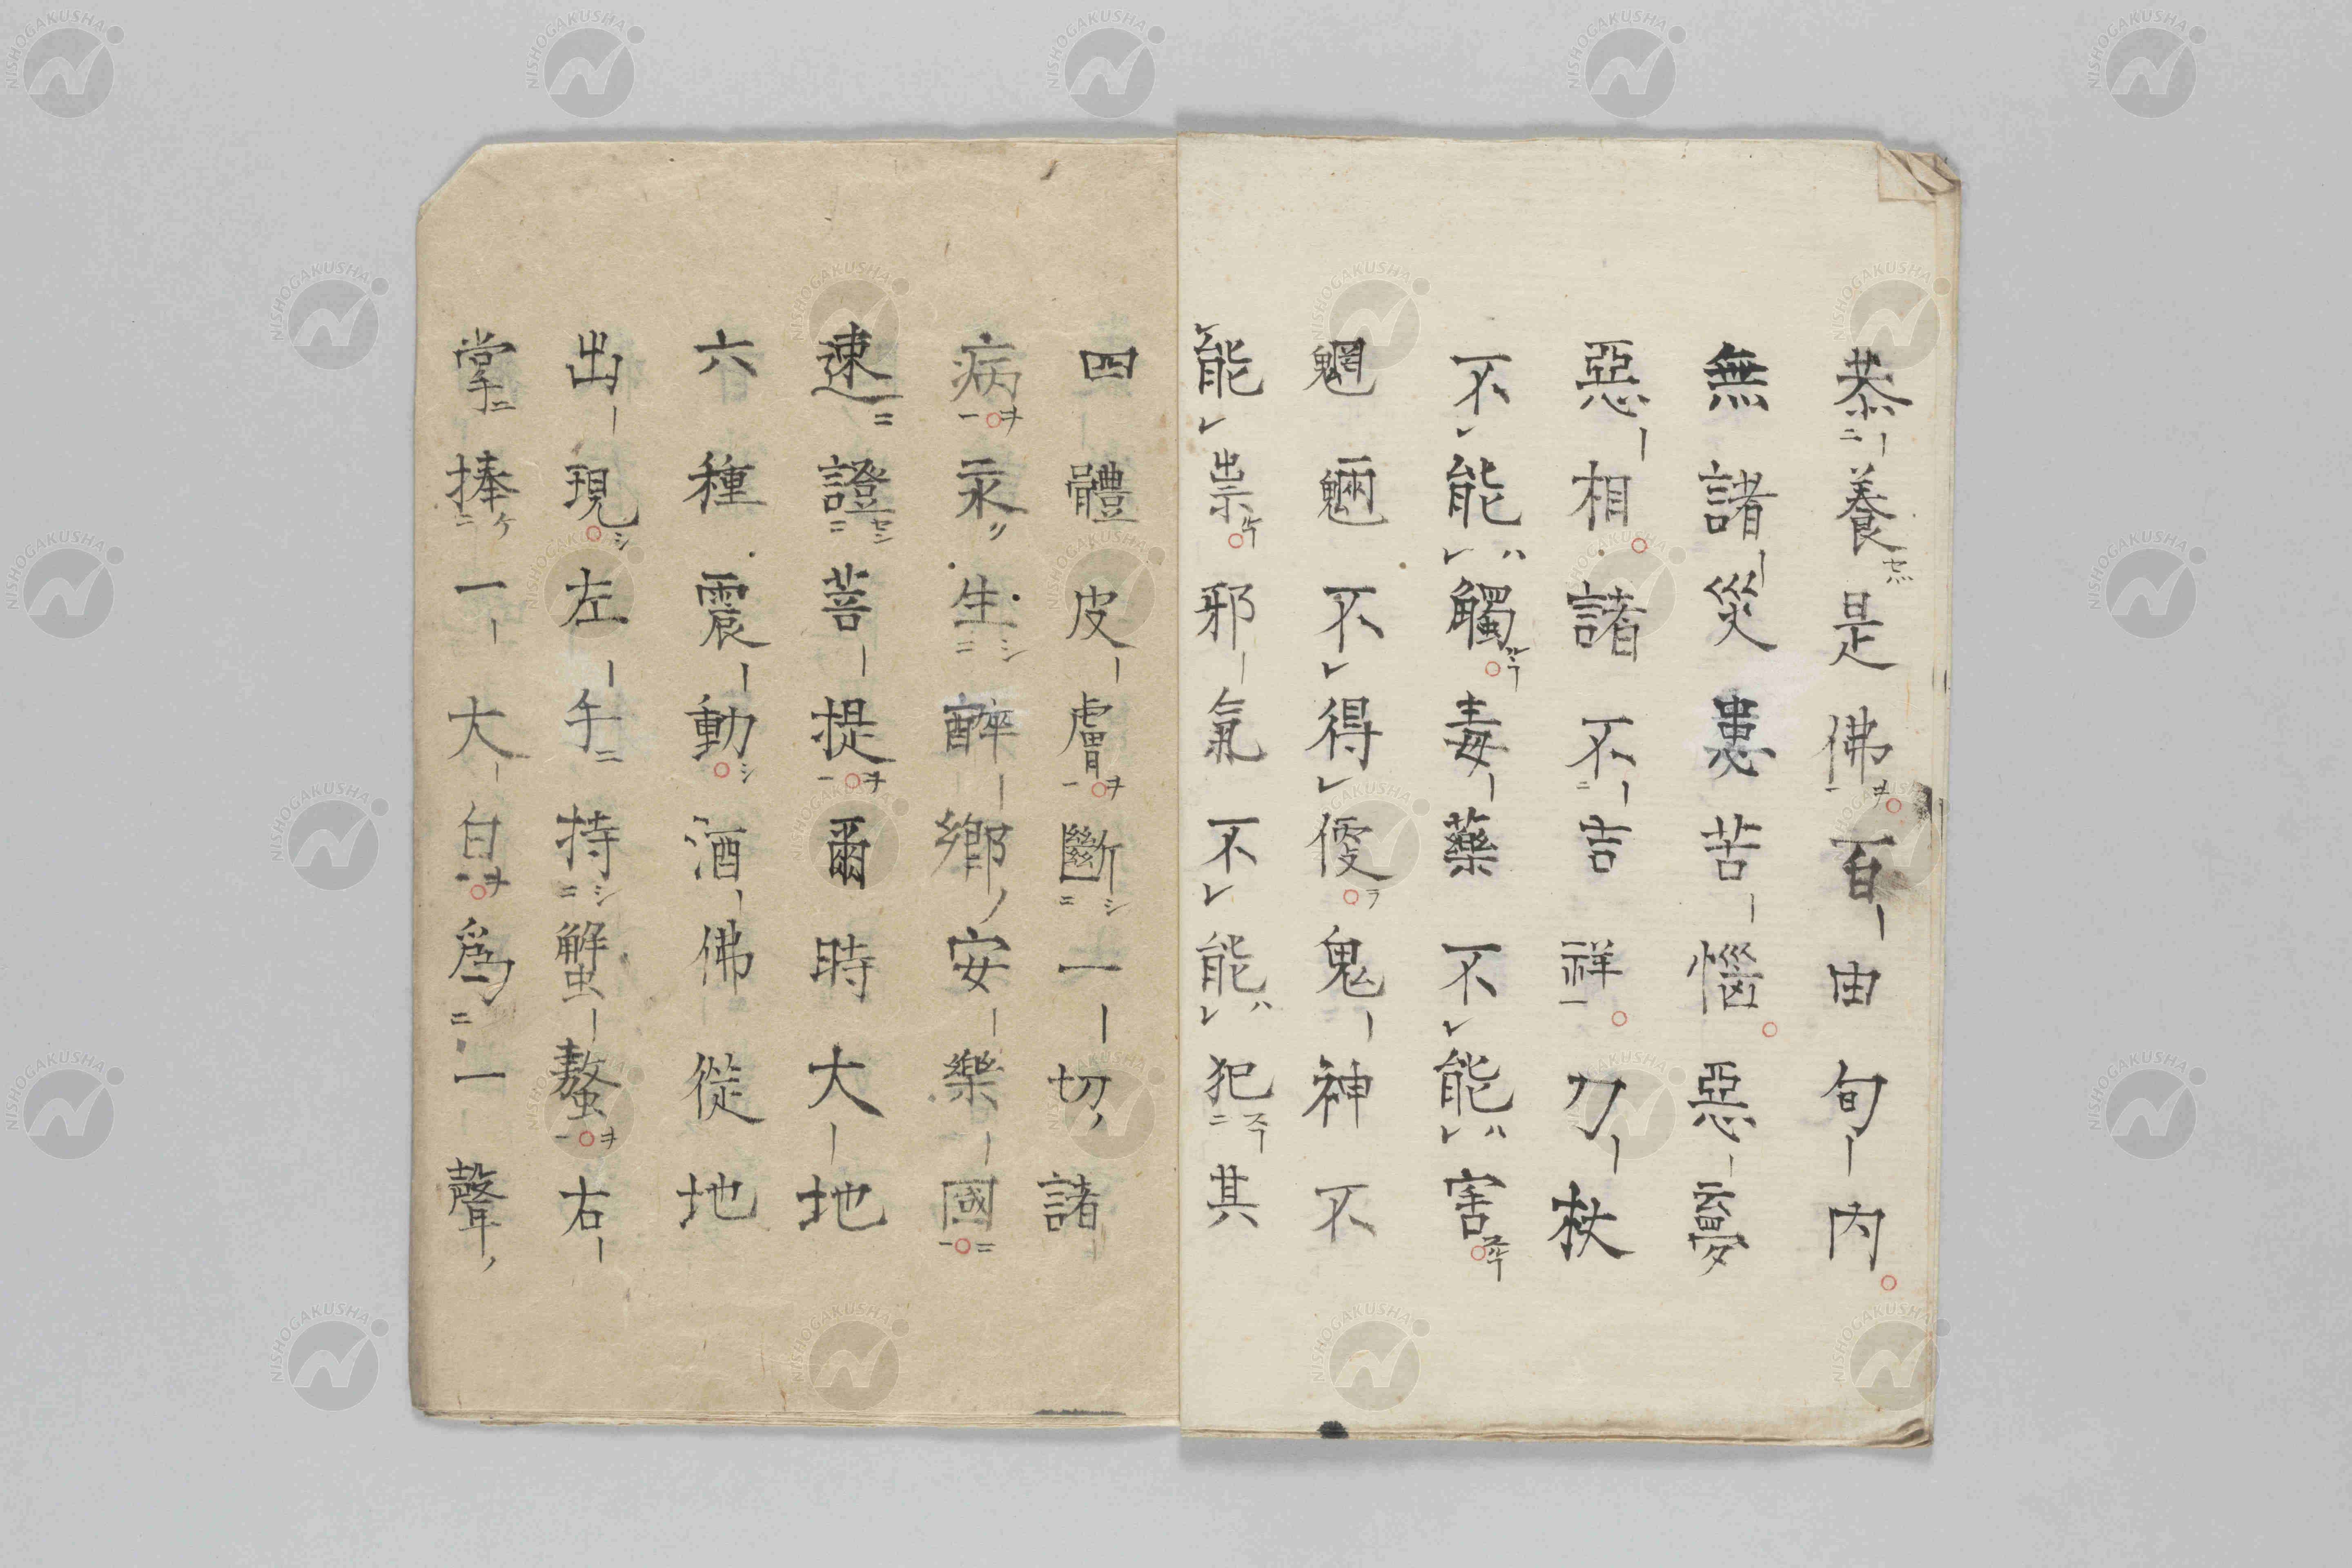 恭養是佛百由旬内
無諸災患苦惱惡夢
惡相諸不吉祥刀杖
不能觸毒藥不能害
魍魎不得便鬼神不
能祟邪氣不能犯其
四體皮膚斷一切諸
病永生醉鄉安樂國
速證菩提爾時大地
六種震動酒佛從地
出現左手持蟹螯右
掌捧一大白爲一聲